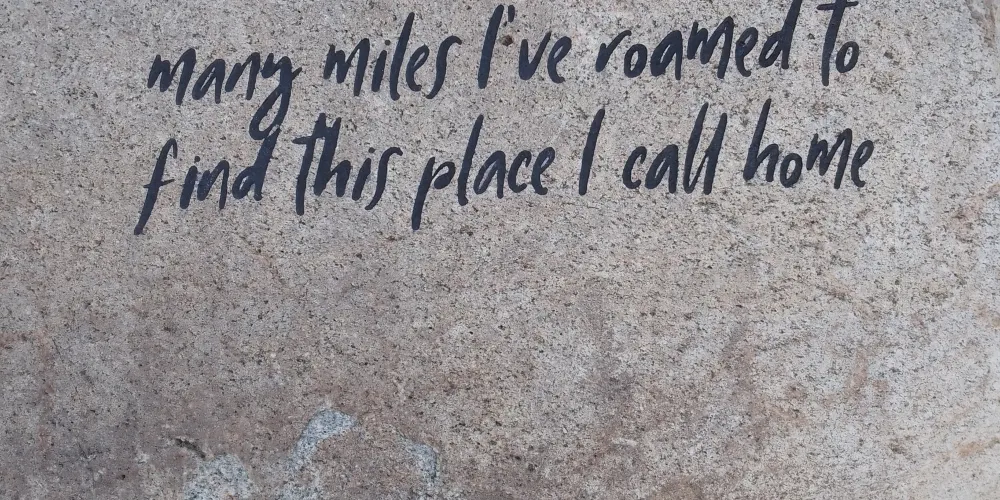 many miles I've roamed to
find this place I call home